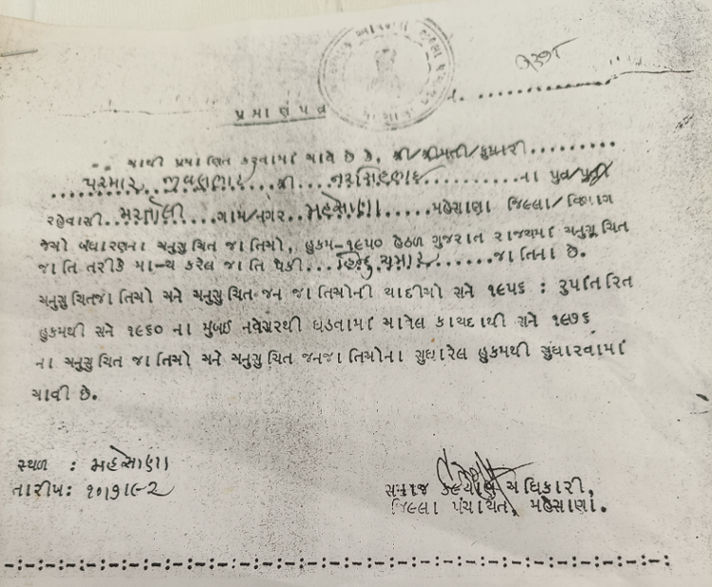 પ્રમાણપત્ર
આથી પ્રમાણિત કરવામાં આવે છે કે, શ્રી/શ્રીમતી/કુમારી.........
પરમાર જીવણભાઈ શ્રી નરસિંહભાઈ ના પુત્ર/પુત્રી
રહેવાસી ગામ/નગર મહેસાણા મહેસાણા જિલ્લા/વિભાગ
જેઓ બંધારણના અનુસુચિત જાતિઓ, હુકમ-૧૯૫૦ હેઠળ ગુજરાત રાજયમાં અનુસૂચિત
જાતિ તરીકે માન્ય કરેલ જાતિ પૈકી...હિન્દુ ચમાર......જાતિના છે.
અનુસુચિતજાતિઓ અને અનુસુચિત જન જાતિઓની યાદીઓ સને ૧૯૫૬ : રુપાંતરિત
હુકમથી સને ૧૯૬૦ ના મુંબઈ થી ઘડવામાં આવેલ કાયદાથી સને ૧૯૭૬
ના અનુસુચિત જાતિઓ અને અનુસુચિત જનજાતિઓના સુધારેલ હુકમથી સુધારવામાં
આવી છે.
સ્થળ : મહેસાણા
તારીખ:
સમાજ કલ્યાણ અધિકારી,
જિલ્લા પંચાયત, મહેસાણા.